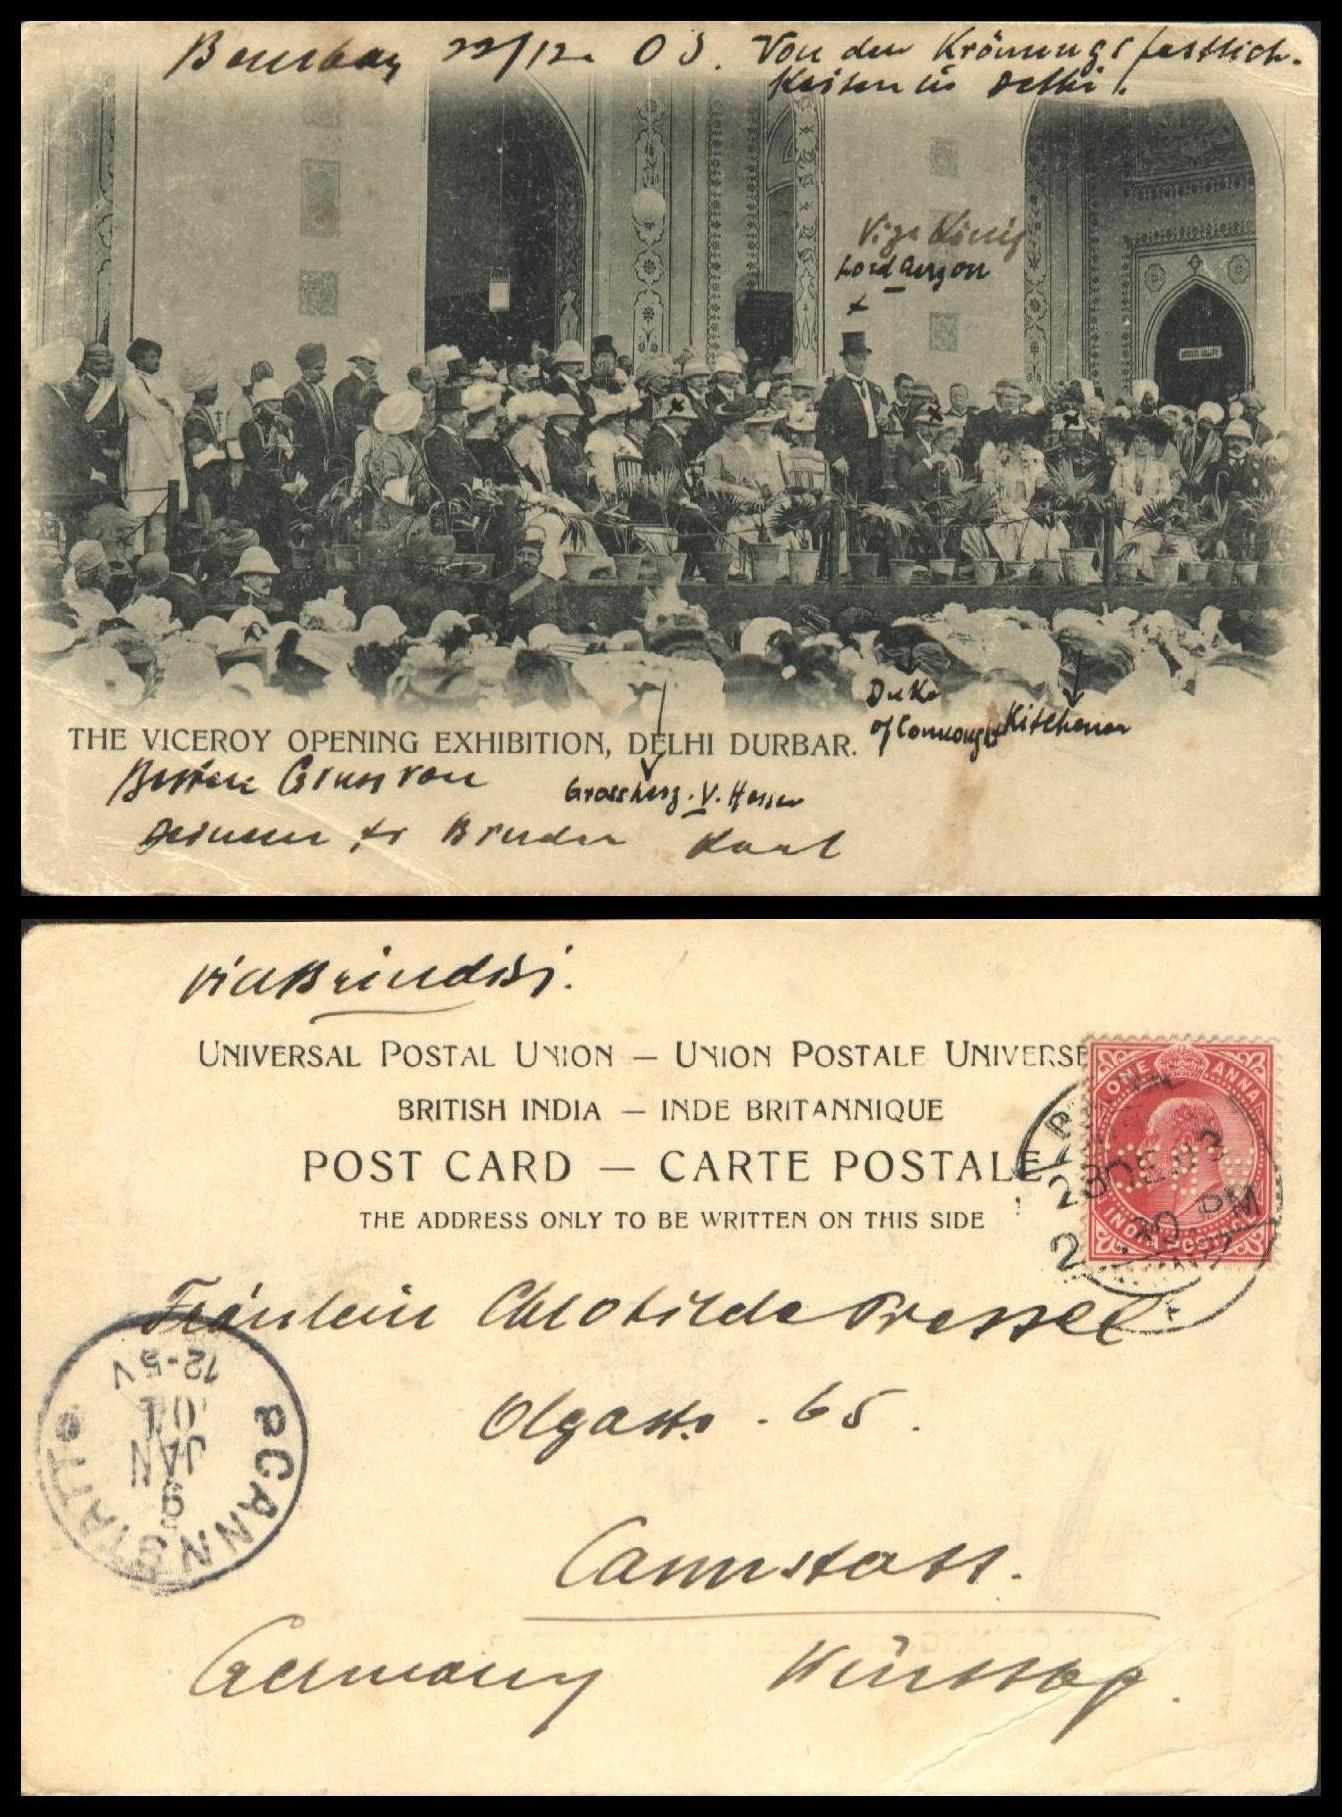 Bombay 22/12. 03. Von den Krönungsfestlich-
keiten in Delhi!
Vize König
Lord Curzon
Duke
of Connought
Kitchener
THE VICEROY OPENING EXHIBITION, DELHI DURBAR.
Besten Gruss von
Grossherz. v. Hessen
deinem tr Bruder Karl
via Brindisi.
UNIVERSAL POSTAL UNION — UNION POSTALE UNIVERSE
BRITISH INDIA — INDE BRITANNIQUE
POST CARD — CARTE POSTALE
THE ADDRESS ONLY TO BE WRITTEN ON THIS SIDE
ONE ANNA
INDIA POSTAGE
23 DE 03
2.30 PM
Fräulein Chlotilde Pressel
Olgastr. 65.
CANNSTATT
9
JAN
04
12-5V
Cannstatt.
Germany Württbg.